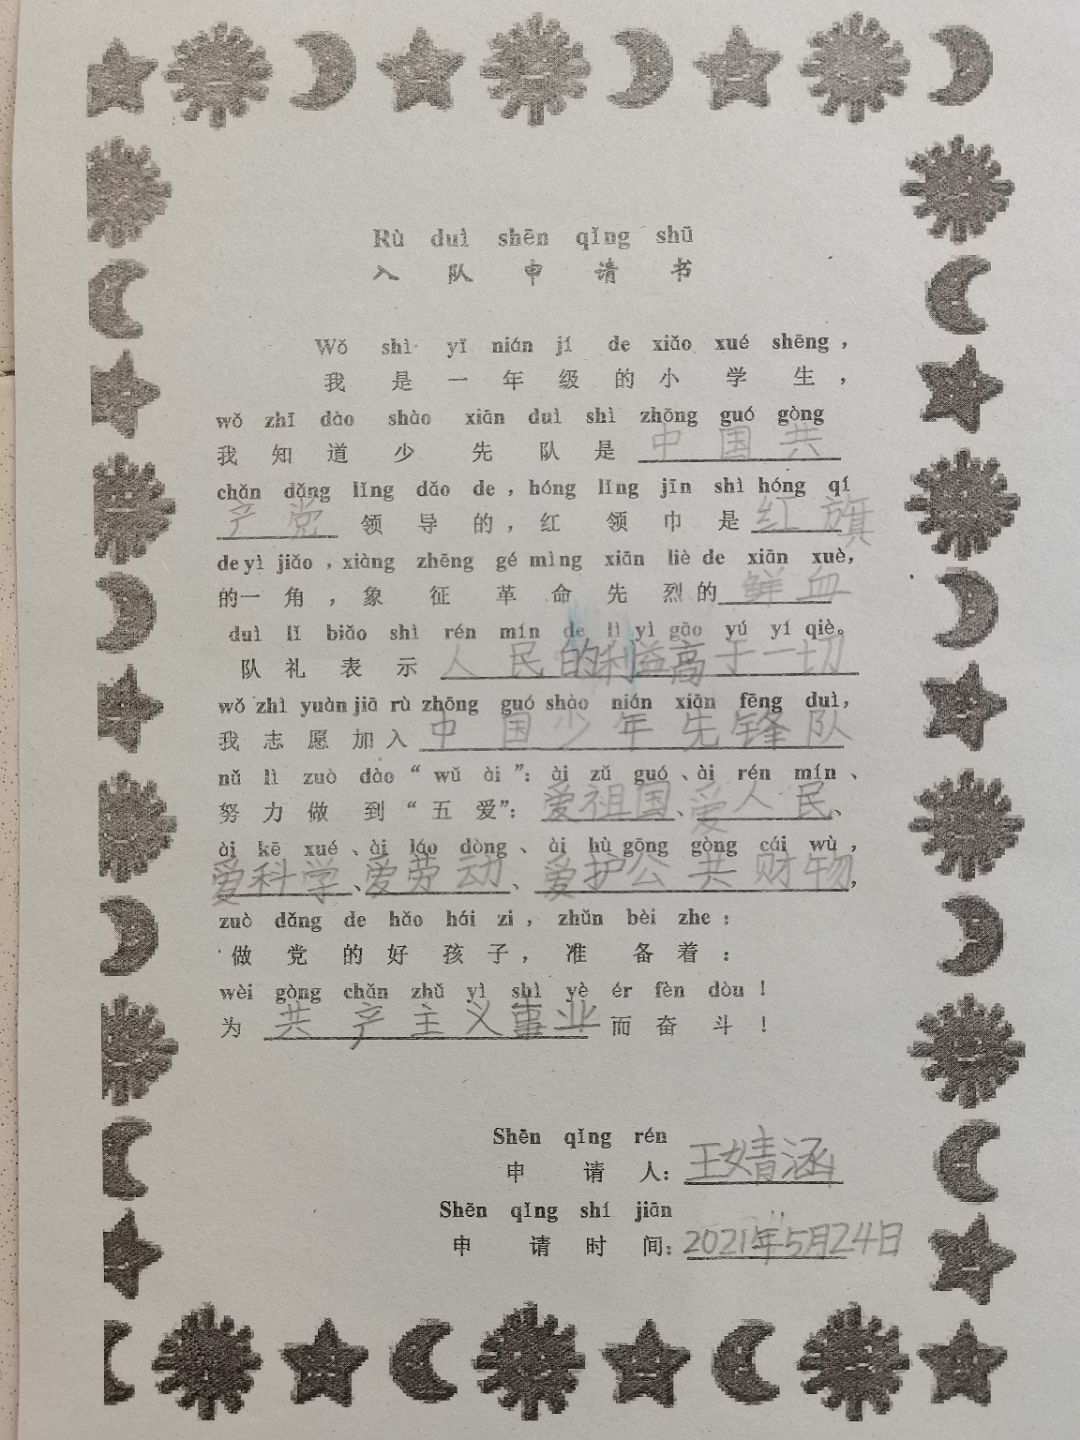 Rù duì shēn qǐng shū
入 队 申 请 书
Wǒ shì yī nián jí de xiǎo xué shēng ，
我 是 一 年 级 的 小 学 生 ，
wǒ zhī dào shào xiān duì shì zhōng guó gòng
我 知 道 少 先 队 是 中 国 共
chǎn dǎng lǐng dǎo de ，hóng lǐng jīn shì hóng qí
产 党 领 导 的，红 领 巾 是 红 旗
de yì jiǎo ，xiàng zhēng gé mìng xiān liè de xiān xuè，
的一 角 ，象 征 革 命 先 烈 的 鲜 血
duì lǐ biǎo shì rén mín de lì yì gāo yú yí qiè。
队 礼 表 示 人 民 的利益高于一切
wǒ zhì yuàn jiā rù zhōng guó shào nián xiān fēng duì，
我 志 愿 加 入 中 国 少 年 先 锋 队
nǔ lì zuò dào “ wǔ ài ”：ài zǔ guó 、ài rén mín 、
努 力 做 到 “ 五 爱”：爱祖国、爱人民、
ài kē xué 、ài láo dòng 、ài hù gōng gòng cái wù ，
爱科学、爱劳动、爱护公共财物，
zuò dǎng de hǎo hái zi ，zhǔn bèi zhe ：
做 党 的 好 孩 子 ，准 备 着 ：
wèi gòng chǎn zhǔ yì shì yè ér fèn dòu ！
为 共 产 主 义 事 业 而 奋 斗 ！
Shēn qǐng rén
申 请 人：王婧涵
Shēn qǐng shí jiān
申 请 时 间：2021年5月24日